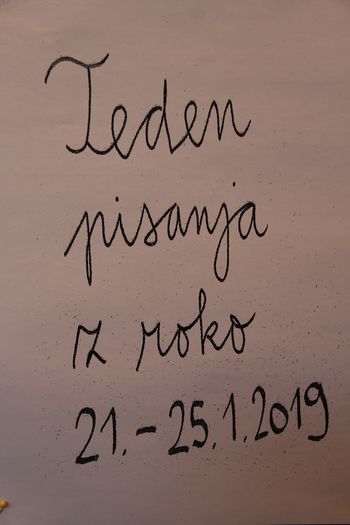 Teden
pisanja
z roko
21.-25.1.2019